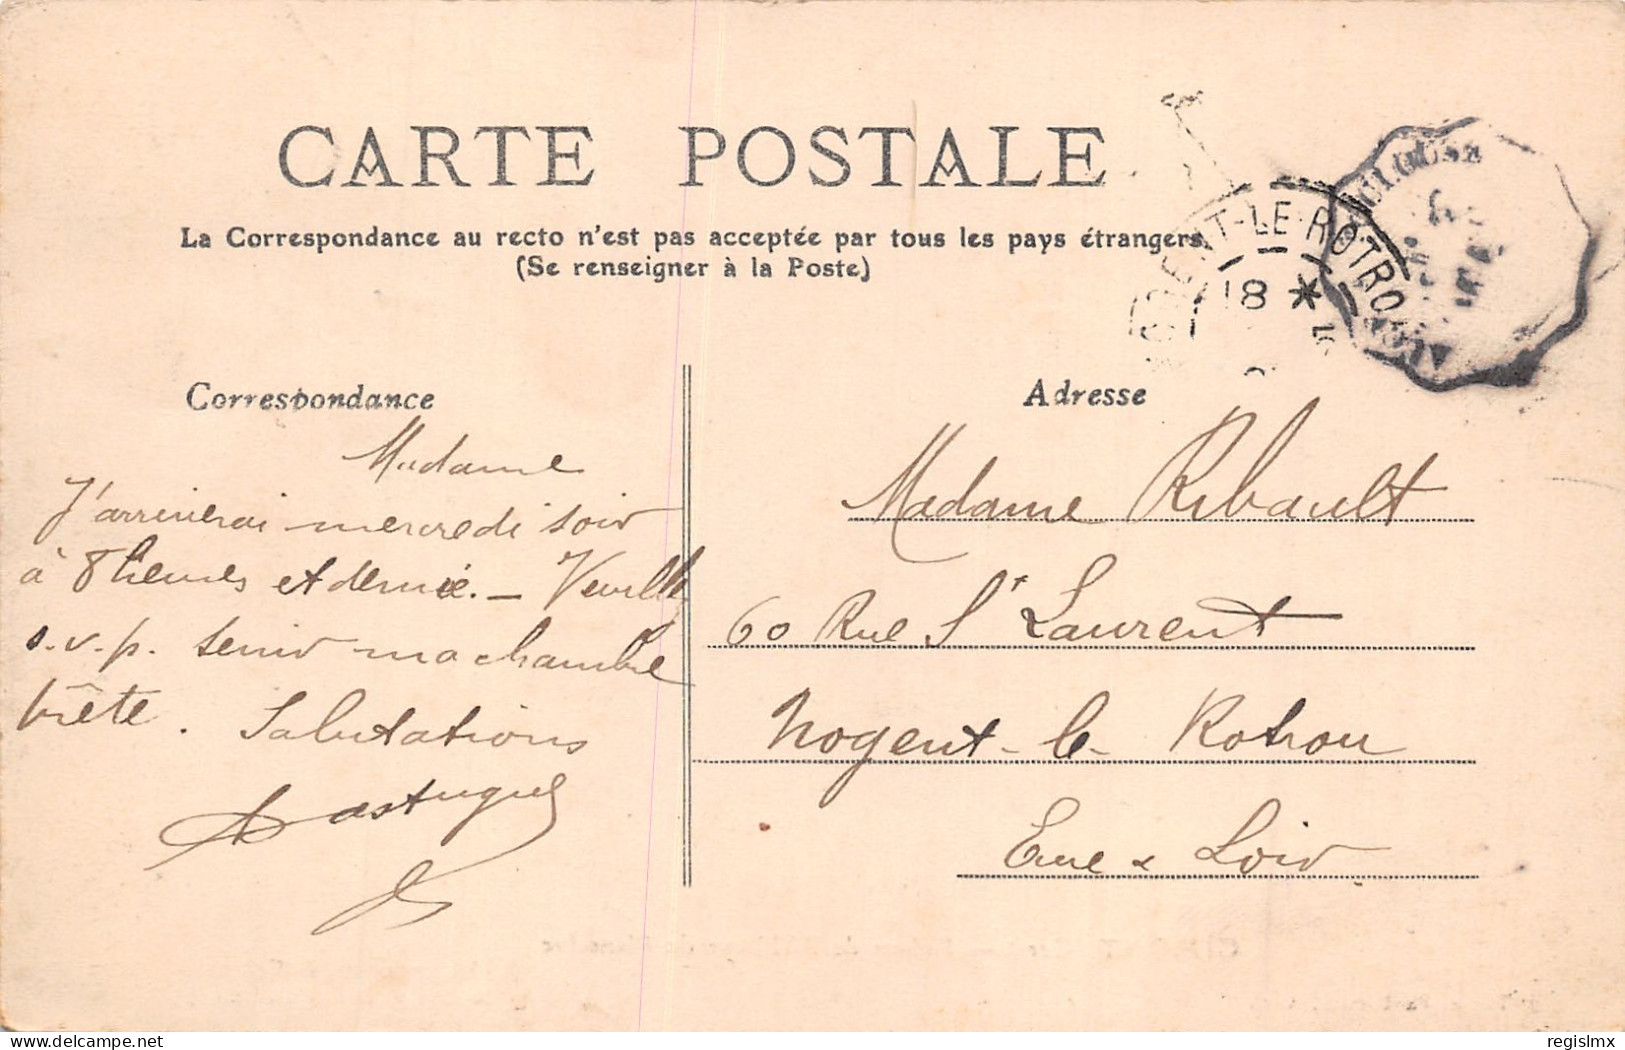 CARTE POSTALE
La Correspondance au recto n'est pas acceptée par tous les pays étrangers
(Se renseigner à la Poste)
NOGENT-LE-ROTROU
18 *
Correspondance
Madame
J'arriverai mercredi soir
à 8 heures et demie. — Veuillez
s.v.p. tenir ma chambre
prête. Salutations
Adresse
Madame Ribault
60 Rue St Laurent
Nogent-le-Rotrou
Eure & Loir
delcampe.net
regislmx